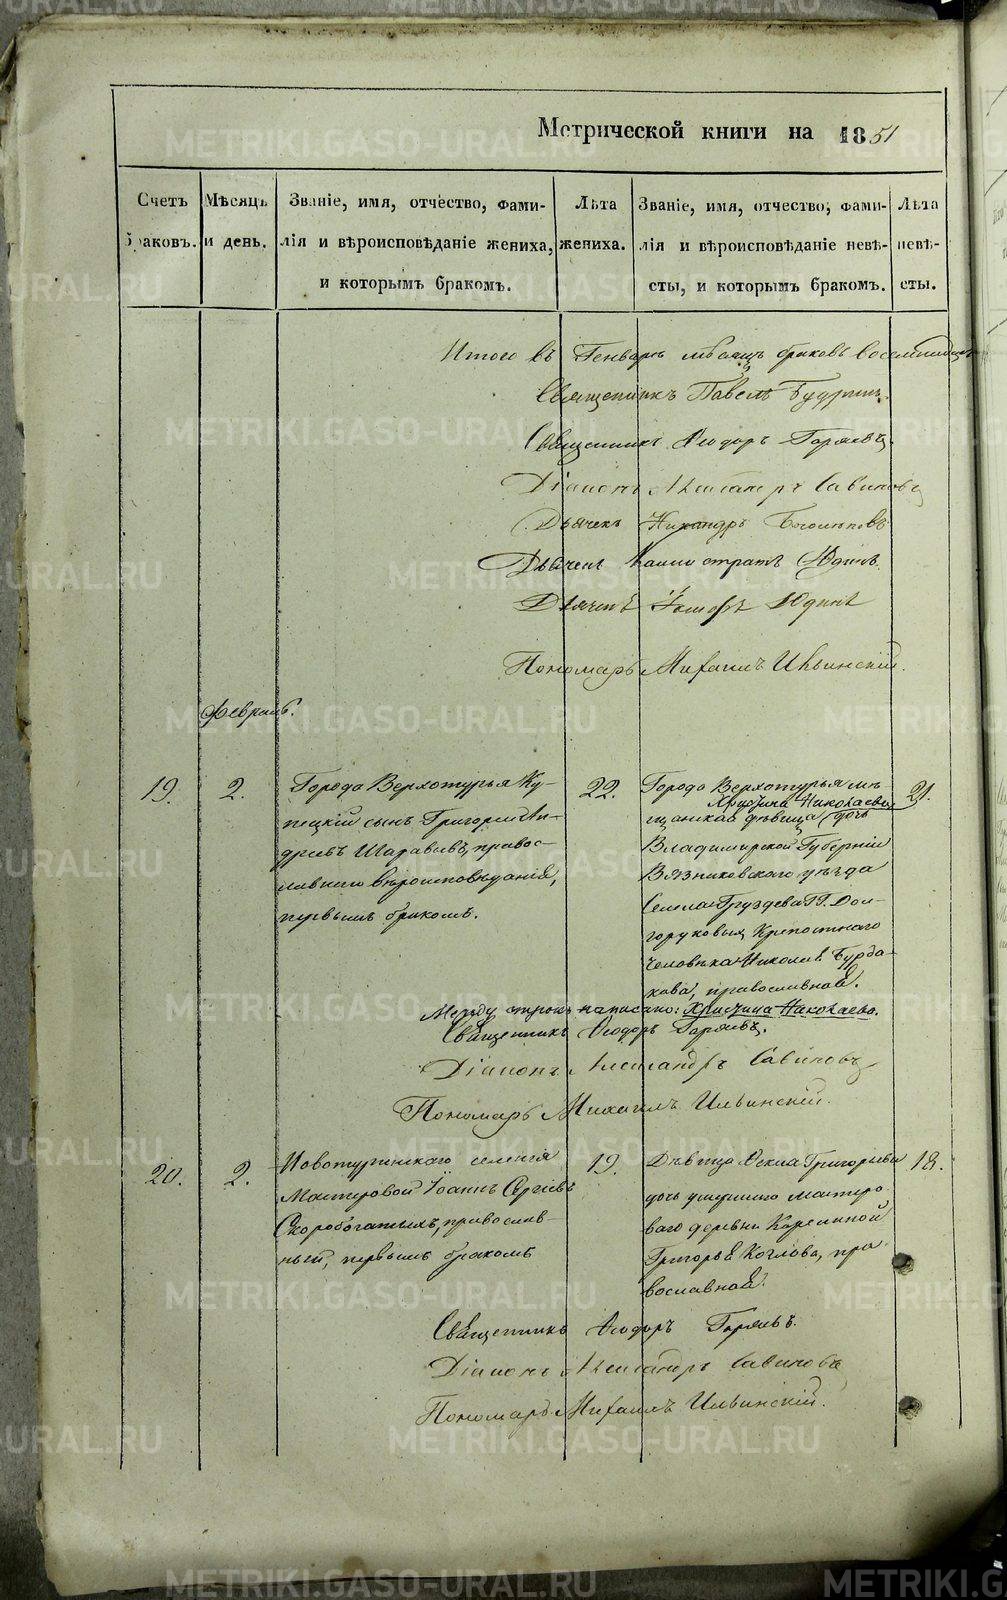 Метрической книги на 1851
Счетъ браковъ.
Мѣсяцъ и день.
Званіе, имя, отчество, фами-
лія и вѣроисповѣданіе жениха,
и которымъ бракомъ.
Лѣта
жениха.
Званіе, имя, отчество, фами-
лія и вѣроисповѣданіе невѣ-
сты, и которымъ бракомъ.
Лѣта
невѣ-
сты.
Итого въ Генварѣ мѣсяцѣ браковъ
Священникъ Павелъ Будринъ.
Священникъ Ѳеодоръ Горяевъ.
Діаконъ Александръ Савиновъ
Дьячекъ Никандръ
Дьячекъ Каллистратъ Юдинъ.
Дьячекъ Юдинъ
Пономарь Михаилъ Ильинскій.
Февраль.
19.
2.
Города Верхотурья Ку-
пецкій сынъ Григорій Ан-
дреевъ Шаравьевъ, правос-
лавнаго вѣроисповѣданія,
первымъ бракомъ.
22.
Города Верхотурья мѣ-
Христина Николаева
щанская дѣвица дочь
Владимирской Губерніи
Вязниковскаго уѣзда
Села Груздева ГГ. Дол-
горуковыхъ Крепостнаго
человѣка Николая Бурда-
кова, православная.
21.
Между строкъ написано: Христина Николаева.
Священникъ Ѳеодоръ Горяевъ.
Діаконъ Александръ Савиновъ
Пономарь Михаилъ Ильинскій.
20.
2.
Новотуринскаго селенія
Мастеровой Іоаннъ Сергіевъ
Скоробогатыхъ, православ-
ный, первымъ бракомъ
19.
Дѣвица Ѳекла Григорьева
дочь умершаго мастеро
ваго деревни Карелиной
Григорья Козлова, пра-
вославная.
18.
Священникъ Ѳеодоръ Горяевъ.
Діаконъ Александръ Савиновъ
Пономарь Михаилъ Ильинскій.
METRIKI.GASO-URAL.RU